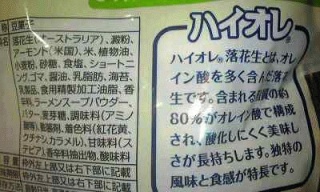 名称 豆菓子
落花生(オーストラリア)、澱粉、
アーモンド(米国)、米、植物油、
小麦粉、砂糖、食塩、ショートニ
ング、ゴマ、醤油、乳脂肪、海苔、
乳製品、食用精製加工油脂、香
辛料、ラーメンスープパウダー、
バター、麦芽糖、調味料(アミノ
酸等)、膨張剤、着色料(紅花黄、
クチナシ、カラメル)、甘味料(ステ
ビア)、香辛料抽出物、酸味料
枠外左上部又は右下部に記載
枠外左上部又は右下部に記載
ハイオレ®
ハイオレ®落花生とは、オレ
イン酸を多く含んだ落花
生です。含まれる脂質の約
80%がオレイン酸で構成
され、酸化しにくく美味し
さが長持ちします。独特の
風味と食感が特長です。